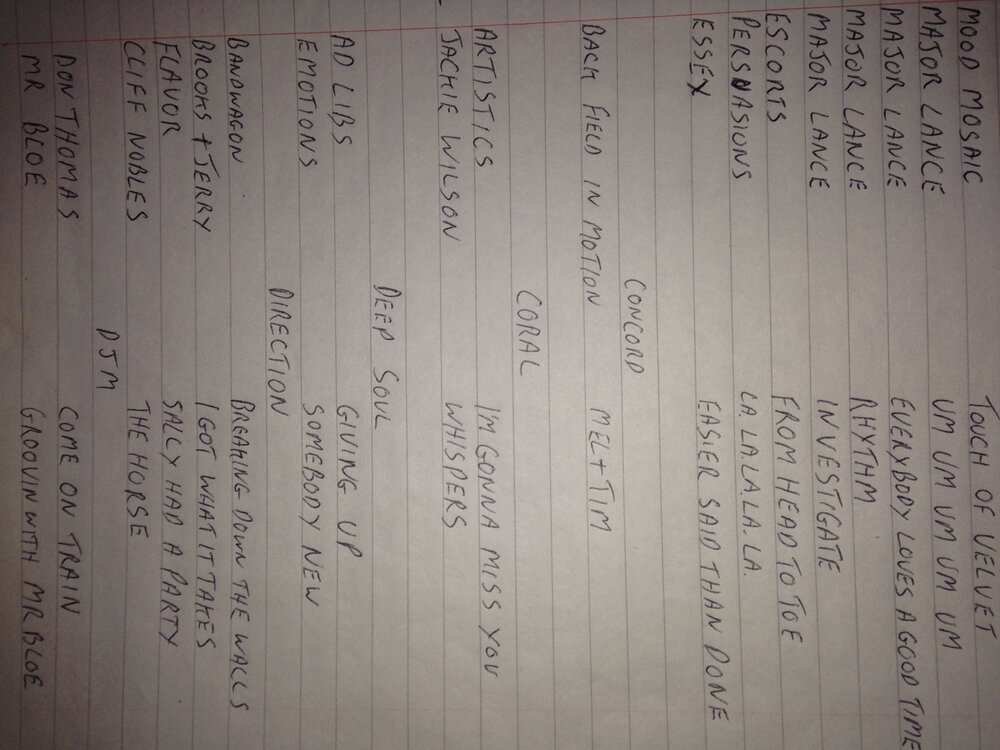 MOOD MOSAIC TOUCH OF VELVET
MAJOR LANCE UM UM UM UM UM
MAJOR LANCE EVERYBODY LOVES A GOOD TIME
MAJOR LANCE RHYTHM
MAJOR LANCE INVESTIGATE
ESCORTS FROM HEAD TO TOE
PERSUASIONS LA. LA LA LA. LA. LA.
ESSEX EASIER SAID THAN DONE
CONCORD
BACK FIELD IN MOTION MEL + TIM
CORAL
ARTISTICS I'M GONNA MISS YOU
JACKIE WILSON WHISPERS
DEEP SOUL
AD LIBS GIVING UP
EMOTIONS SOMEBODY NEW
DIRECTION
BANDWAGON BREAKING DOWN THE WALLS
BROOKS + JERRY I GOT WHAT IT TAKES
FLAVOR SALLY HAD A PARTY
CLIFF NOBLES THE HORSE
DJM
DON THOMAS COME ON TRAIN
MR BLOE GROOVIN WITH MR BLOE